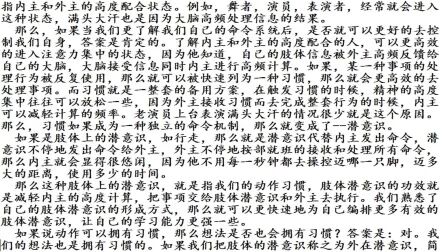 指内主和外主的高度配合状态。例如，舞者，演员，表演者，经常就会进入
这种状态，满头大汗也是因为大脑高频处理信息的结果。
那么，如果当我们更了解我们自己的命令系统后，是否就可以更好的去控
制我们自身，答案是肯定的。了解内主和外主的高度配合的人，可以更高效
的进入注意力集中的状态，因为他知道，自己的肢体信息被外主高频反馈给
自己的大脑，大脑接受信息同时内主进行高频计算。如果，某一种事项的处
理行为被反复使用，那么就可以被快速列为一种习惯，那么就会更高效的去
处理事项。而习惯就是一整套的备用方案，在触发习惯的时候，精神的高度
集中往往可以放松一些，因为外主接收习惯而去完成整套行为的时候，内主
可以减轻计算的频率。老演员上台表演满头大汗的情况很少就是这个原因。
那么，习惯如果成为一种独立的命令机制，那么就变成了--潜意识。
如果是肢体上的潜意识，如行走，那么就是潜意识代替内主发出命令，潜
意识不停地发出命令给外主，外主不停地按部就班的接收和处理所有命令，
那么内主就会显得很悠闲，因为他不用每一秒钟都去操控迈哪一只脚，迈多
大的距离，使用多少的时间。
那么这种肢体上的潜意识，就是指我们的动作习惯，肢体潜意识的功效就
是减轻内主的高度计算，把事项交给肢体潜意识和外主去执行。我们熟悉了
自己的肢体潜意识的形成方式，那么就可以更快速地为自己编排更多有效的
肢体潜意识，让自己的学习能力更强一些。
如果说动作可以拥有习惯，那么想法是否也会拥有习惯？答案是：对。我
们的想法也是拥有习惯的。如果我们把肢体的潜意识称之为外在潜意识，同